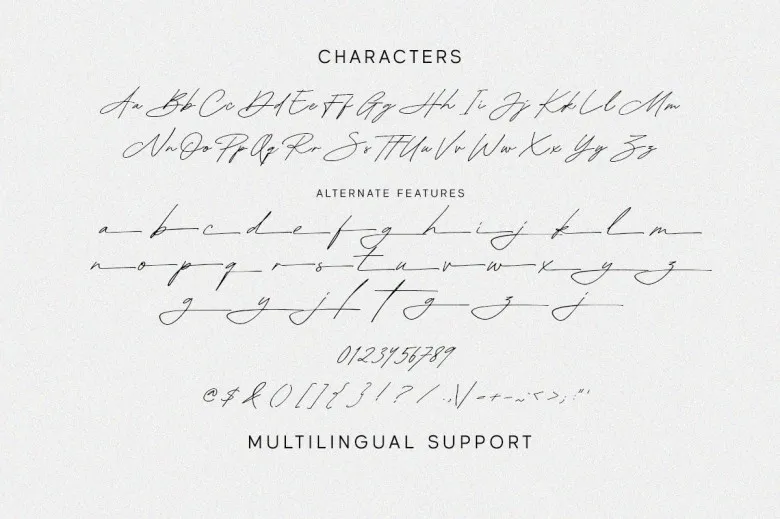 CHARACTERS
Aa Bb Cc Dd Ee Ff Gg Hh Ii Jj Kk Ll Mm
Nn Oo Pp Qq Rr Ss Tt Uu Vv Ww Xx Yy Zz
ALTERNATE FEATURES
a b c d e f g h i j k l m
n o p q r s t u v w x y z
g y j f t g z j
0123456789
@ $ & ( ) [ ] { } ! ? /
MULTILINGUAL SUPPORT